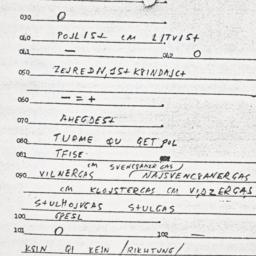 030 O
040 POJLIST CM LITVIST
041 — 042 O
050 ZEJREDN, IST KRINDAJCT
060 — = +
070 AHEGDEST
080 TUDME QU GET POL
081 TFISE
CM SVENCSANER GAS
090 VILNERGAS (NAJSVENCSANERGAS
CM KLOJSTERGAS CM VIDZERGAS
STULHOJVGAS STULGAS
100 GPESL
101 O 102 —
KSIN QI KEIN /RIKHTUNG/